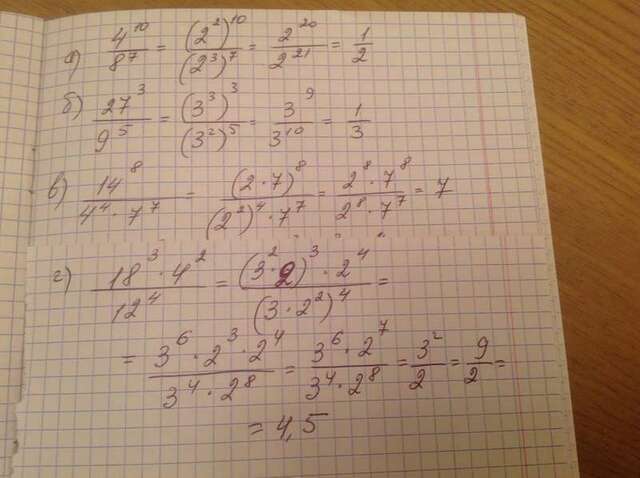 а) 4^10/8^7 = (2^2)^10/(2^3)^7 = 2^20/2^21 = 1/2
б) 27^3/9^5 = (3^3)^3/(3^2)^5 = 3^9/3^10 = 1/3
в) 14^8/(4^4 · 7^7) = (2 · 7)^8/((2^2)^4 · 7^7) = (2^8 · 7^8)/(2^8 · 7^7) = 7
г) (18^3 · 4^2)/12^4 = ((3^2 · 2)^3 · 2^4)/(3 · 2^2)^4 =
= (3^6 · 2^3 · 2^4)/(3^4 · 2^8) = (3^6 · 2^7)/(3^4 · 2^8) = 3^2/2 = 9/2 =
= 4,5